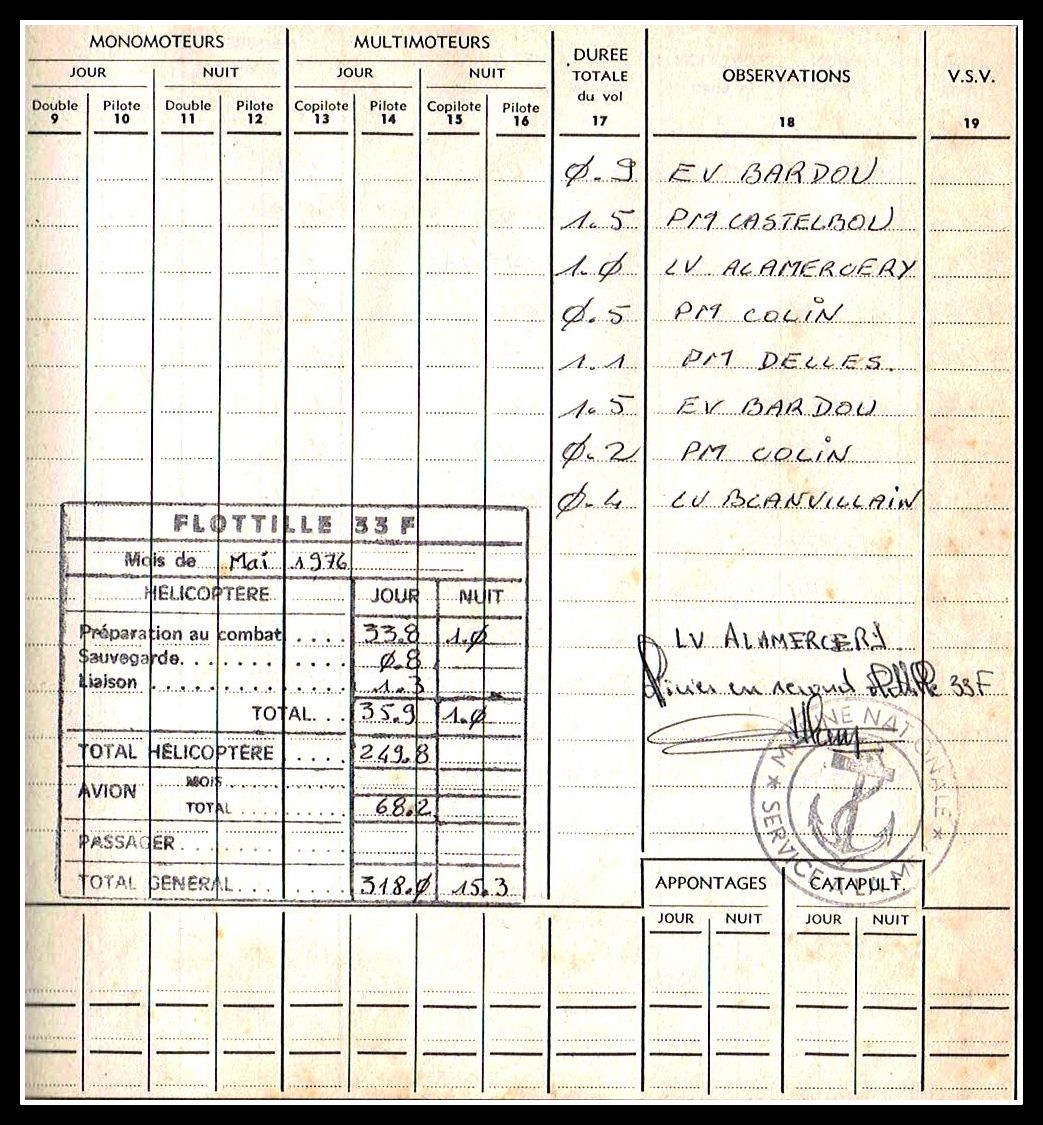 MONOMOTEURS MULTIMOTEURS DUREE TOTALE du vol OBSERVATIONS V.S.V.
JOUR NUIT JOUR NUIT
Double Pilote Double Pilote Copilote Pilote Copilote Pilote
9 10 11 12 13 14 15 16 17 18 19
Ø.9 EV BARDOU
1.5 PM CASTELBOU
1.Ø LV ALAMERCERY
Ø.5 PM COLIN
1.1 PM DELLES.
1.5 EV BARDOU
Ø.2 PM COLIN
Ø.4 LV BLANVILLAIN
FLOTTILLE 33 F
Mois de Mai 1976
HÉLICOPTÈRE JOUR NUIT
Préparation au combat .... 33.8 1.Ø
Sauvegarde........... Ø.8
Liaison ............... 1.3
TOTAL... 35.9 1.Ø
TOTAL HÉLICOPTÈRE .... 249.8
AVION MOIS
TOTAL 68.2
PASSAGER
TOTAL GÉNÉRAL 318.Ø 15.3
LV ALAMERCERY
en second flottille 33F
MARINE NATIONALE
★ SERVICE ★
APPONTAGES CATAPULT.
JOUR NUIT JOUR NUIT